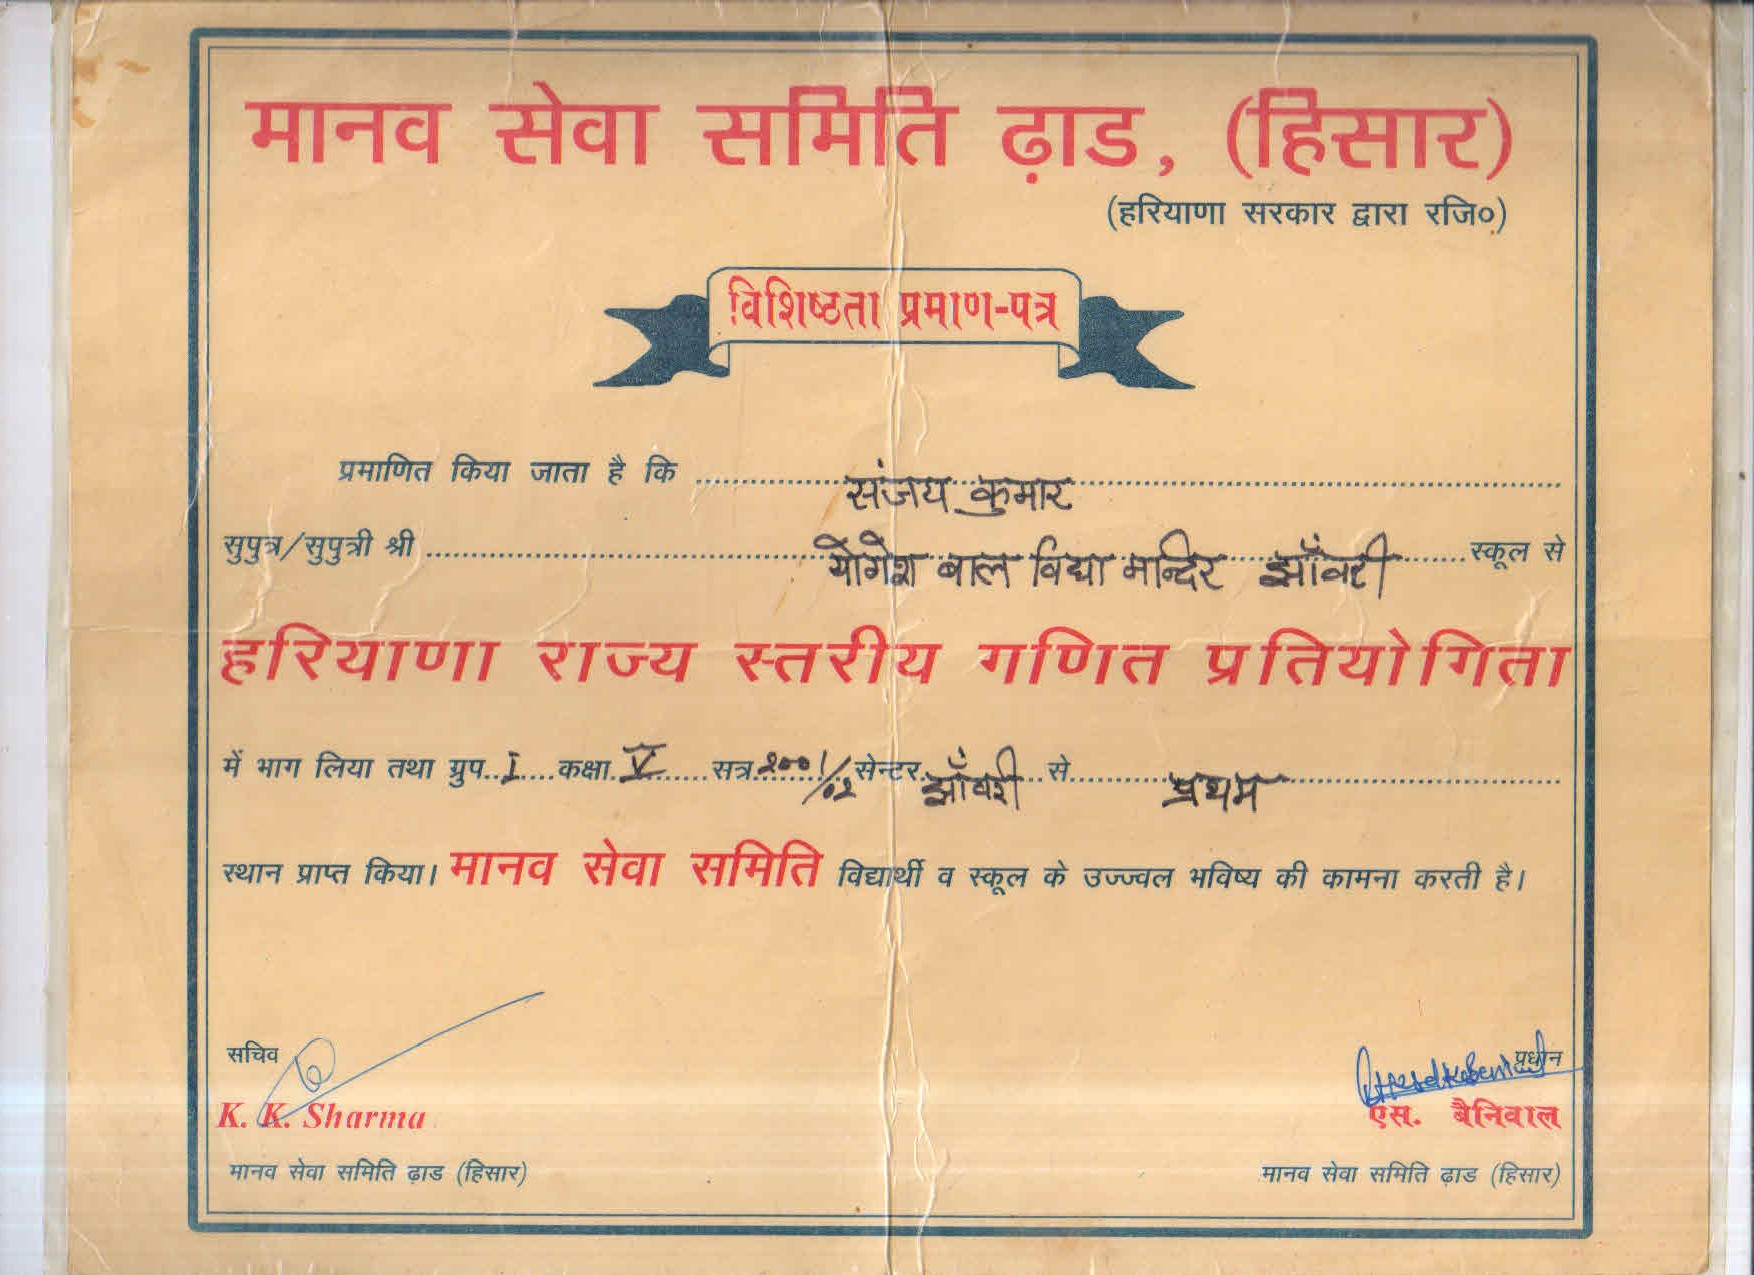 मानव सेवा समिति ढ़ाड, (हिसार)
(हरियाणा सरकार द्वारा रजि०)
विशिष्टता प्रमाण-पत्र
प्रमाणित किया जाता है कि संजय कुमार
सुपुत्र/सुपुत्री श्री योगेश बाल विद्या मन्दिर झाँवरी स्कूल से
हरियाणा राज्य स्तरीय गणित प्रतियोगिता
में भाग लिया तथा ग्रुप I कक्षा V सत्र २००१/०२ सेन्टर झाँवरी से प्रथम
स्थान प्राप्त किया। मानव सेवा समिति विद्यार्थी व स्कूल के उज्ज्वल भविष्य की कामना करती है।
सचिव प्रधान
K. K. Sharma एस. बैनिवाल
मानव सेवा समिति ढ़ाड (हिसार) मानव सेवा समिति ढ़ाड (हिसार)